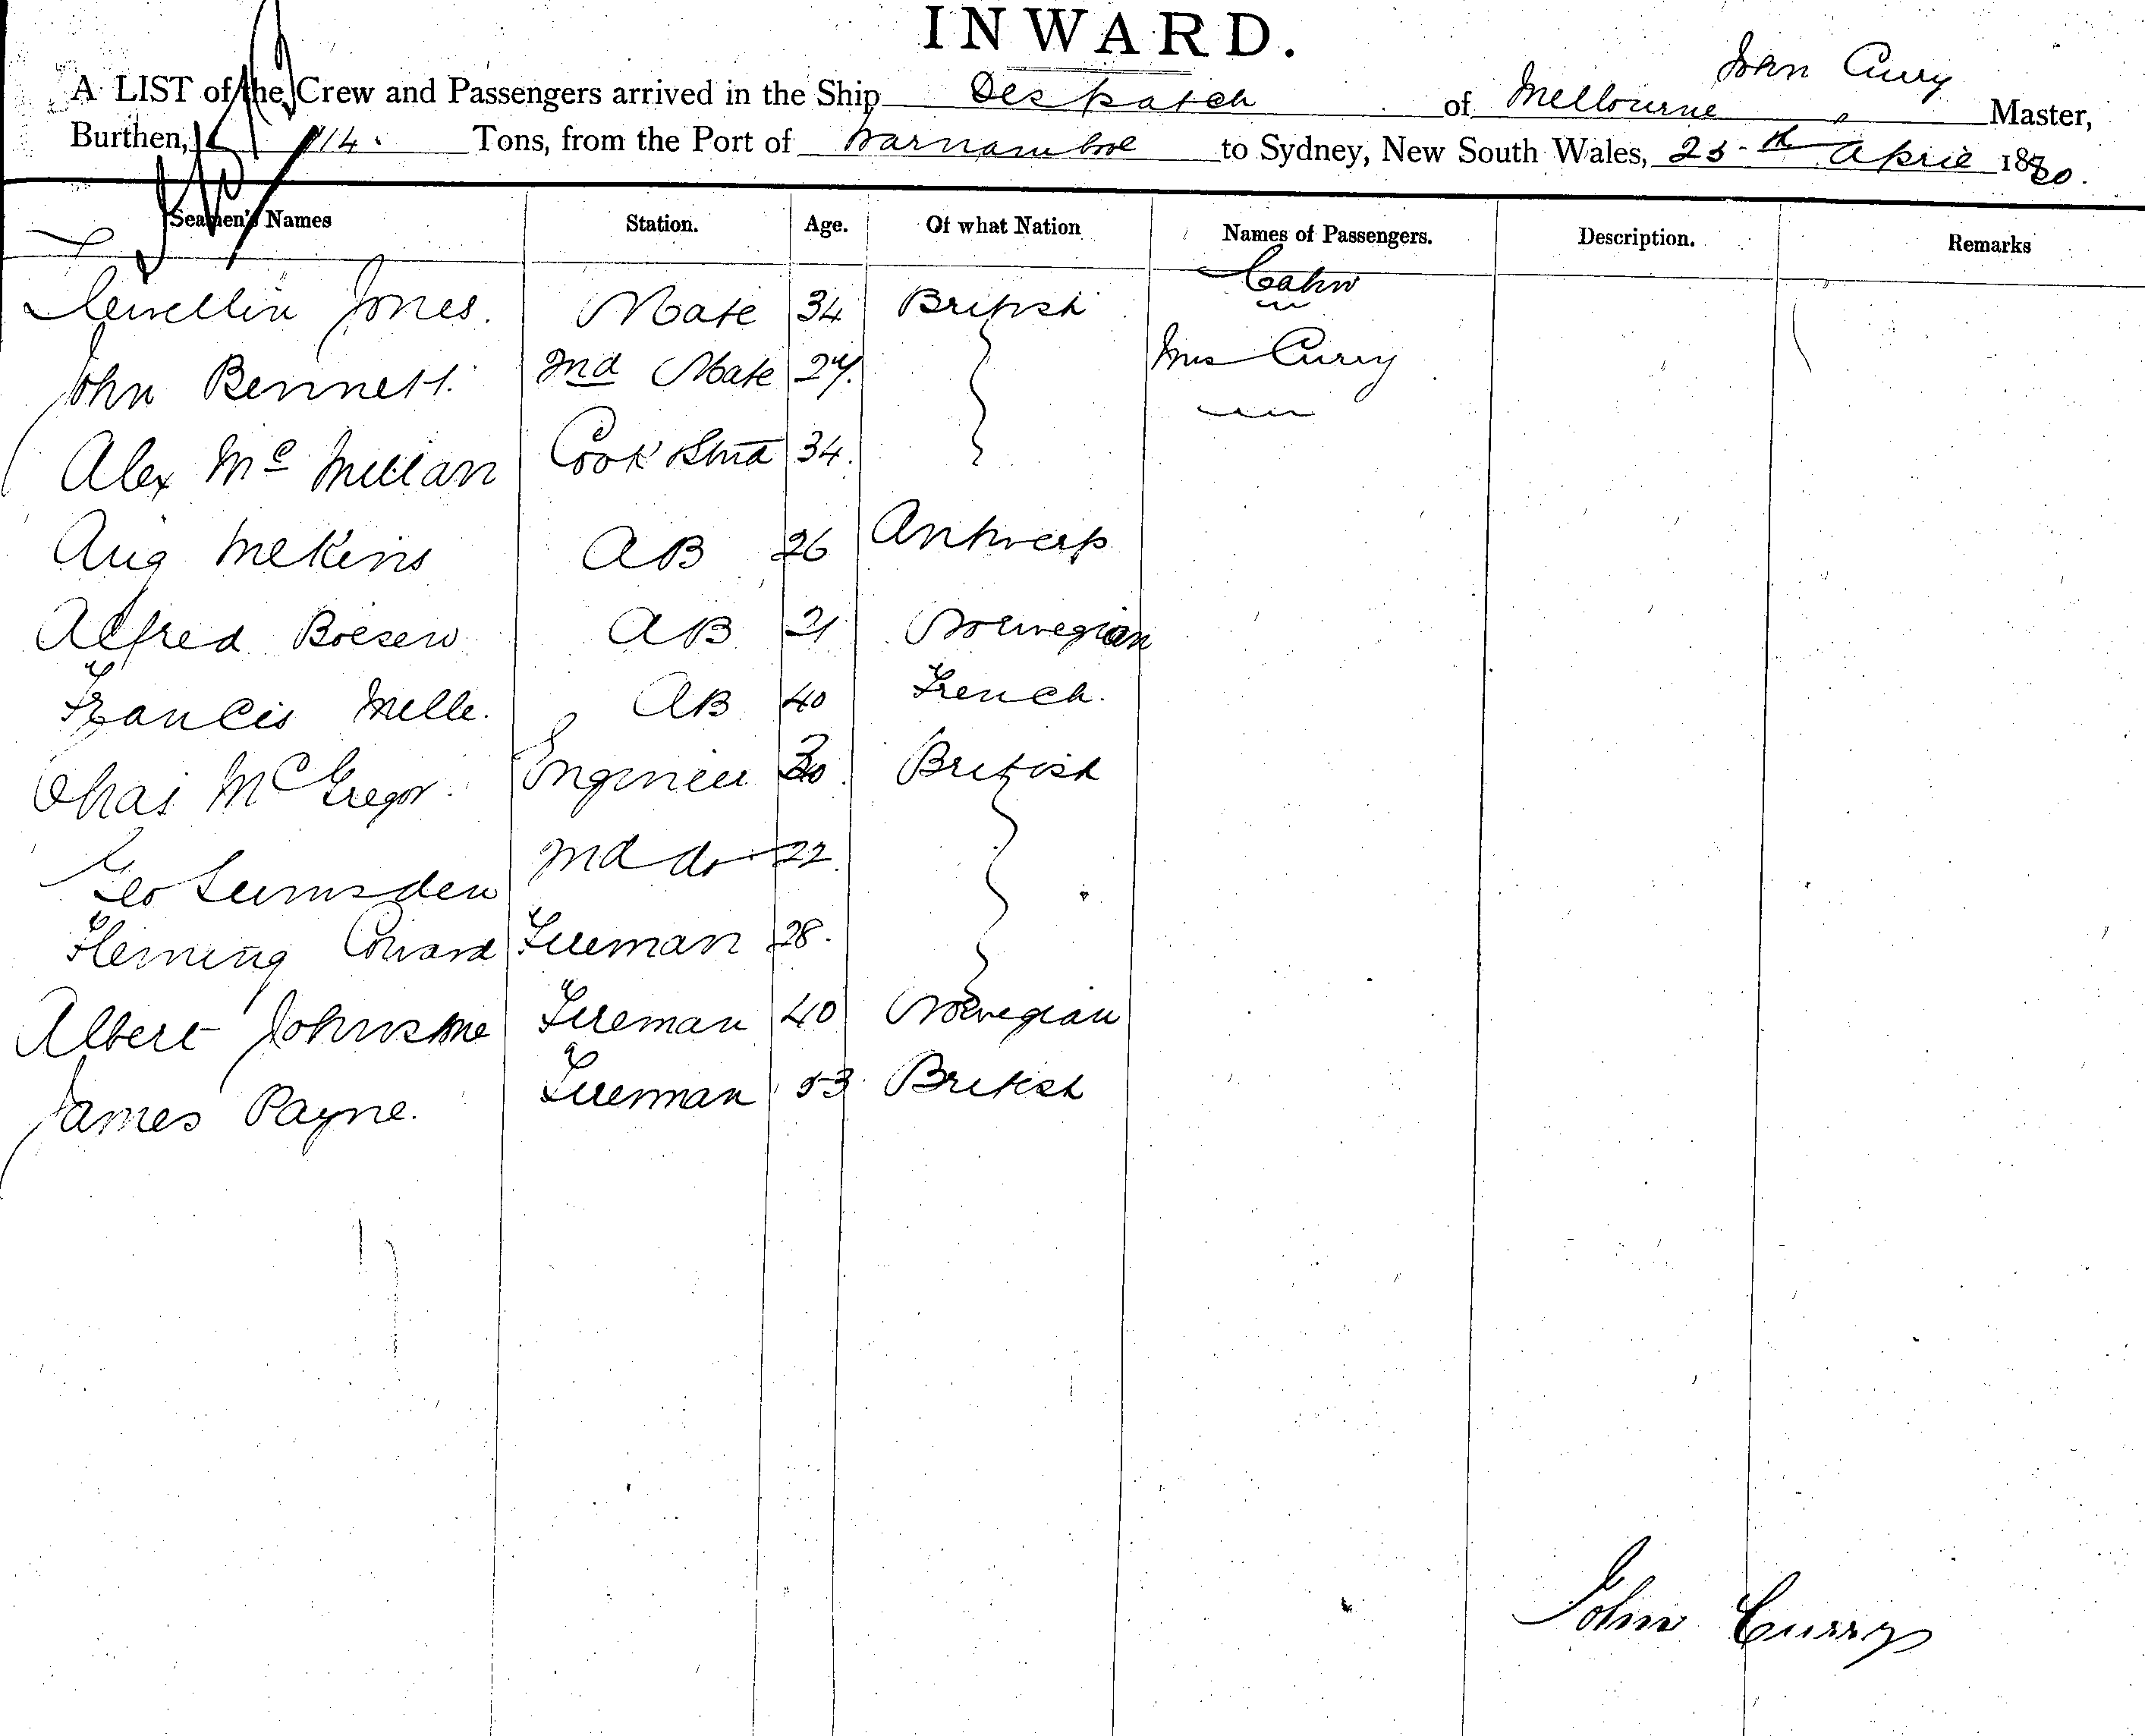 INWARD.
A LIST of the Crew and Passengers arrived in the Ship Despatch of Melbourne, John Curry Master,
Burthen, 114. Tons, from the Port of Warnambool to Sydney, New South Wales, 25th April 1880.
Seamen's Names Station. Age. Of what Nation Names of Passengers. Description. Remarks
Cabin
Lewellin Jones. Mate 34 British
John Bennett. 2nd Mate 27. Mrs Curry
Alex Mc Millan Cook Stwd 34.
Aug Mekins AB 26 Antwerp
Alfred Boesen AB 21 Norwegian
Francis Melle. AB 40 French.
Chas McGregor. Engineer 30 British
Geo Lumsden 2nd do 22.
Fleming Coward Fireman 28.
Albert Johnstone Fireman 40 Norwegian
James Payne. Fireman 53 British
John Curry